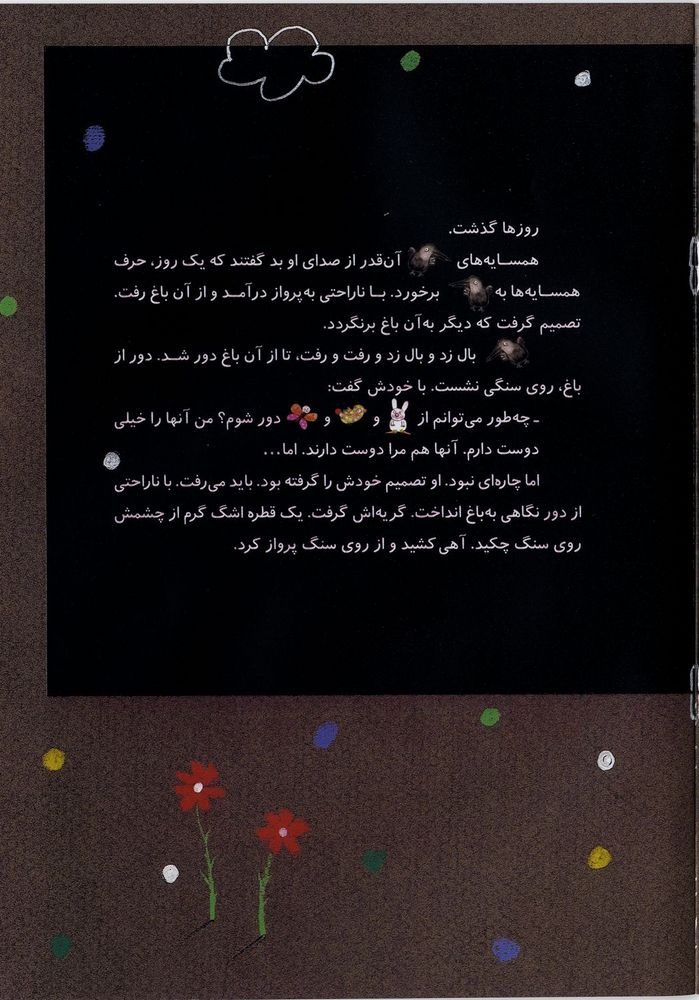 روزها گذشت.
همسایه‌های آن‌قدر از صدای او بد گفتند که یک روز، حرف
همسایه‌ها به برخورد. با ناراحتی به‌پرواز درآمد و از آن باغ رفت.
تصمیم گرفت که دیگر به‌آن باغ برنگردد.
بال زد و بال زد و رفت و رفت، تا از آن باغ دور شد. دور از
باغ، روی سنگی نشست. با خودش گفت:
ـ چه‌طور می‌توانم از و و دور شوم؟ من آنها را خیلی
دوست دارم. آنها هم مرا دوست دارند. اما...
اما چاره‌ای نبود. او تصمیم خودش را گرفته بود. باید می‌رفت. با ناراحتی
از دور نگاهی به‌باغ انداخت. گریه‌اش گرفت. یک قطره اشگ گرم از چشمش
روی سنگ چکید. آهی کشید و از روی سنگ پرواز کرد.